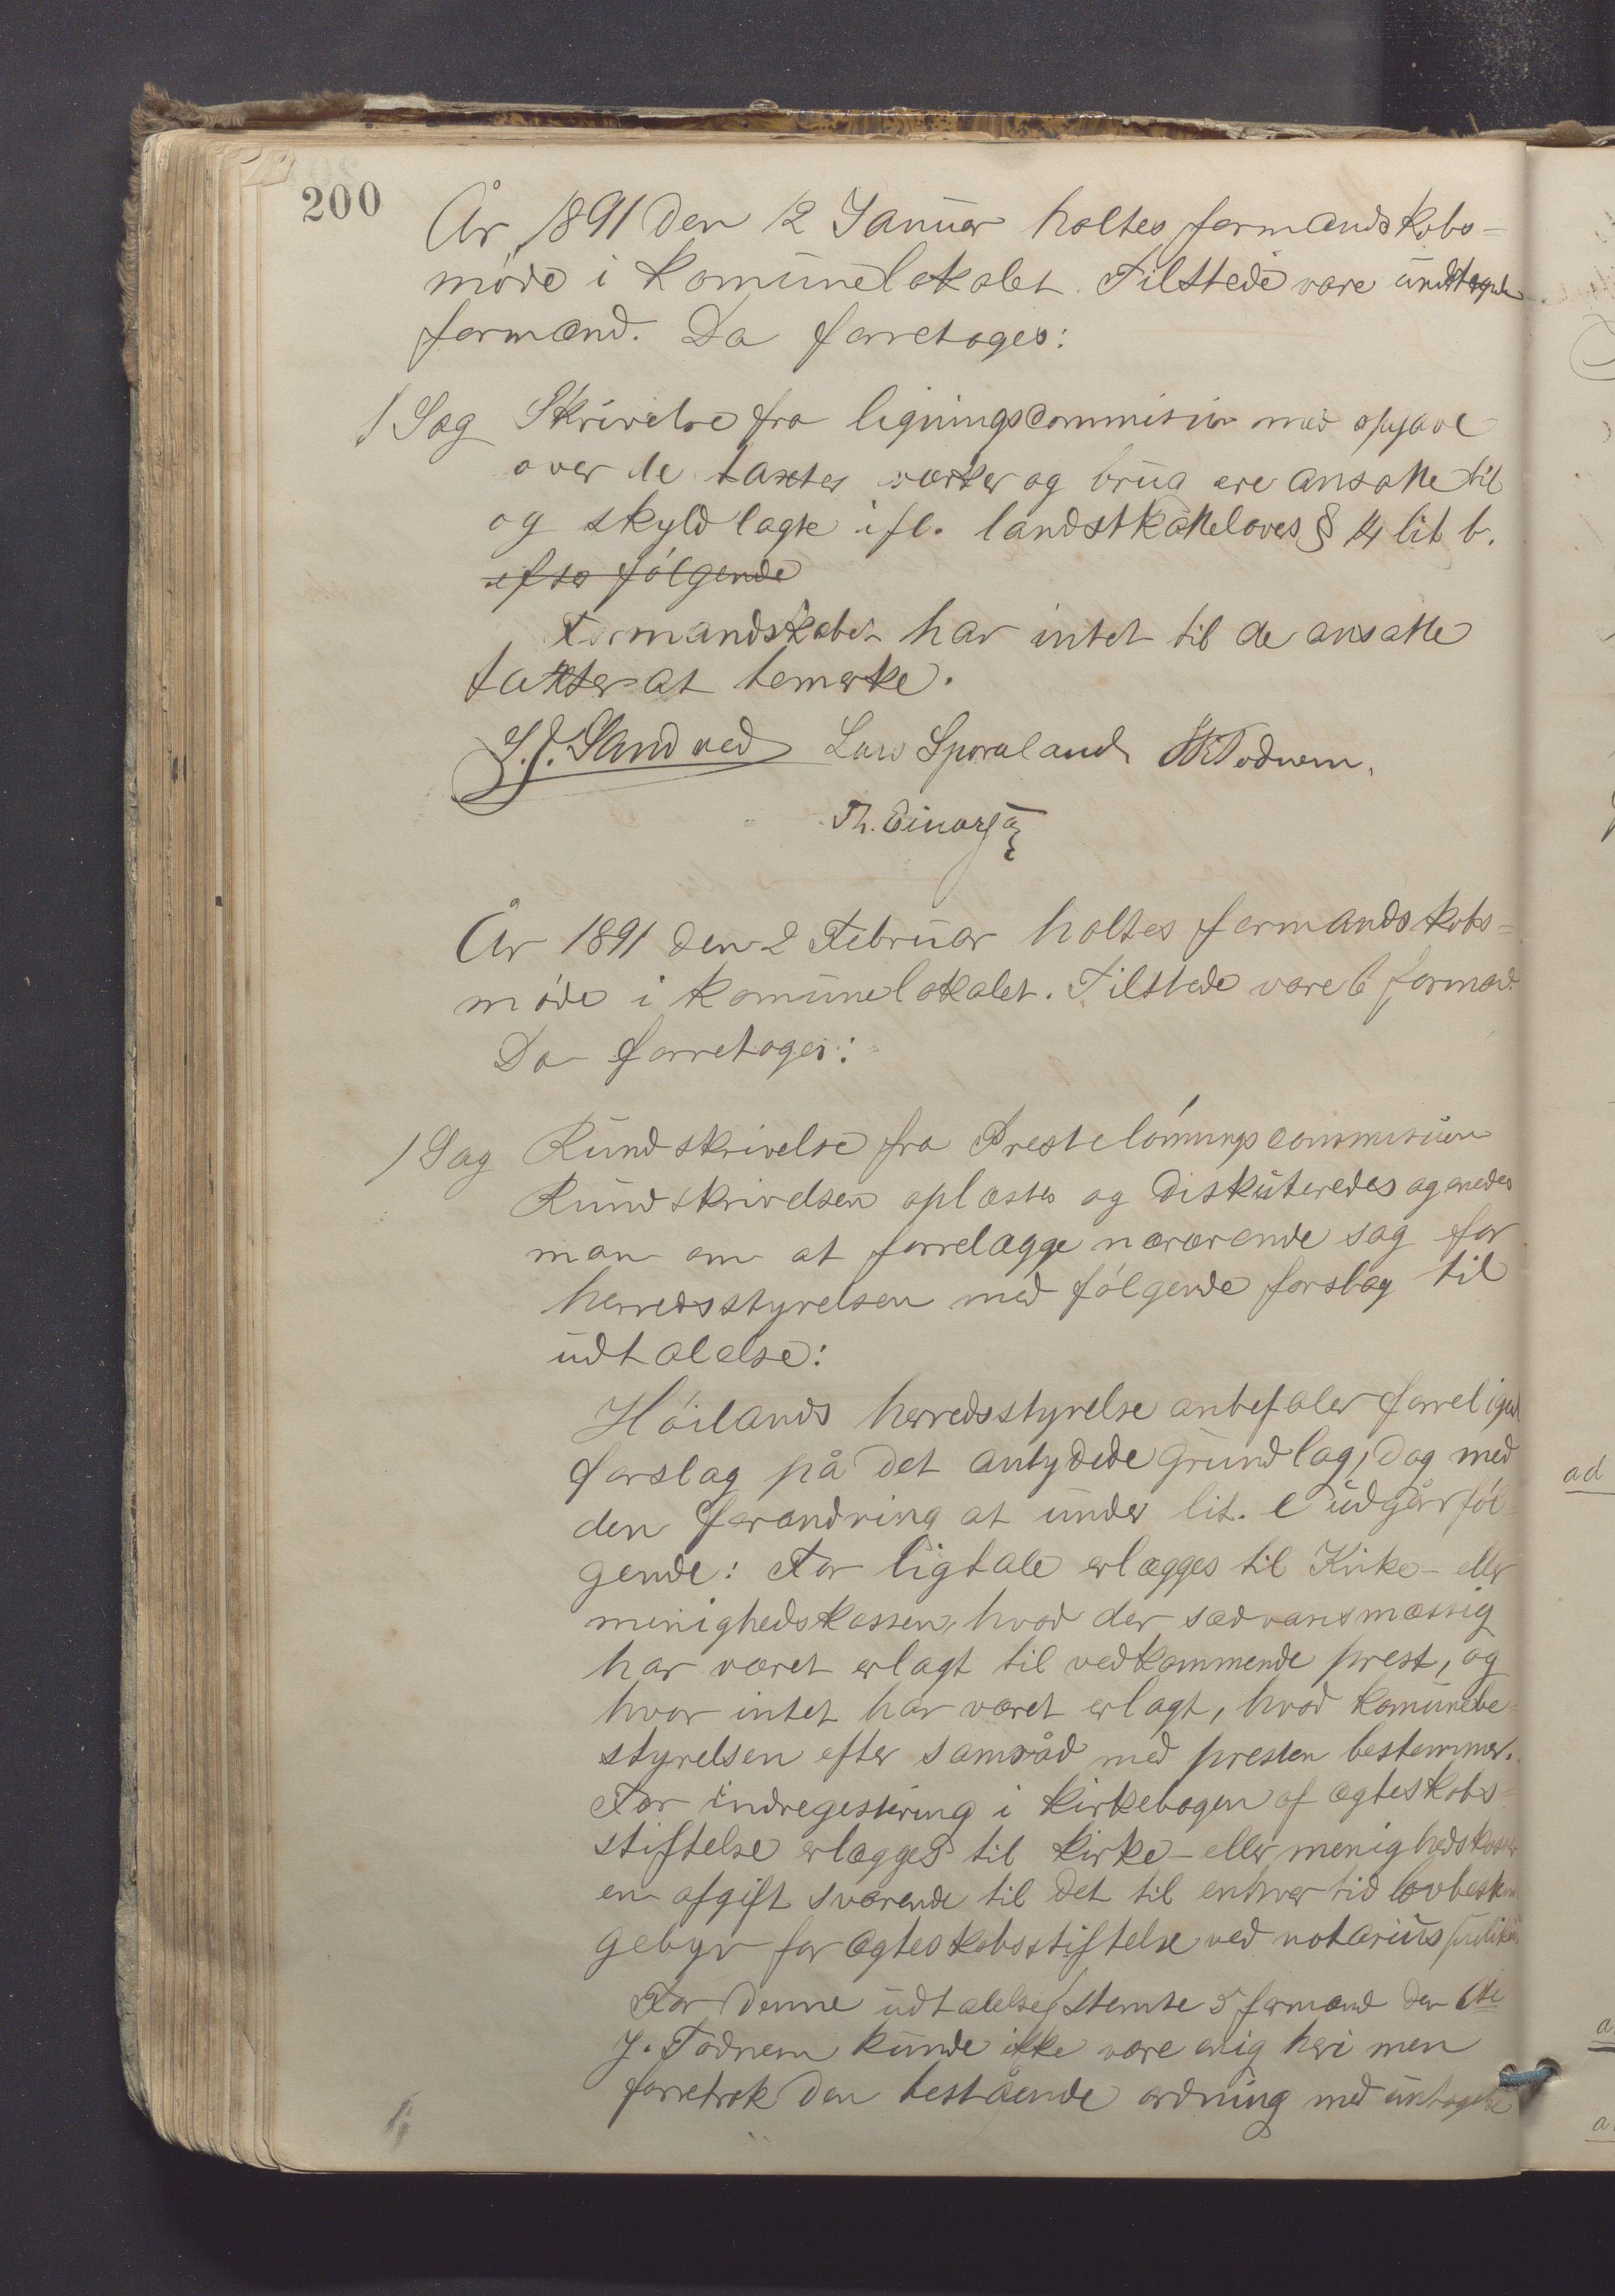 200
År 1891 den 12 Januar holtes formandskabs-
møde i Komunelokalet. Tilstede vare undtegnede
formænd. Da foretoges:
1 Sag Skrivelse fra ligningscommision med opgave
over de taxter værker og brug ere ansatte til
og skyldlagte ifl. landsskatteloves § 14 lit b.
efter følgende
Formandskabet har intet til de ansatte
taxter at bemerke.
S. J. Sandved Lars Sporaland Todnem.
Th. Einarsen
År 1891 den 2 Februar holtes formandskabs-
møde i komunelokalet. Tilstede vare 6 formænd.
Da forretoges:
1 Sag Rundskrivelse fra Prestelønningscommisionen
Rundskrivelsen oplæstes og diskuteredes og enedes
man om at forrelægge nærværende sag for
herredsstyrelsen med følgende forslag til
udtalelse:
Høilands herredsstyrelse anbefaler forreligend
forslag på det antydede grundlag, dog med
den forandring at under lit. e udgår føl-
gende: For ligtale erlægges til Kirke- eller
menighedskassen, hvad der sædvansmæssig
har været erlagt til vedkommende prest, og
hvor intet har været erlagt, hvad komunebe-
styrelsen efter samråd med presten bestemmer.
For indregistering i kirkebogen af ægteskabs-
stiftelse erlægges til kirke- eller menighedskassen
en afgift svarende til det til enhver tid lovbestem
gebyr for ægteskabsstiftelse ved notarius publikus
For denne udtalelse stemte 5 formænd den 6te
J. Todnem kunde ikke være enig heri men
forretrak den bestående ordning med untagelse
ad